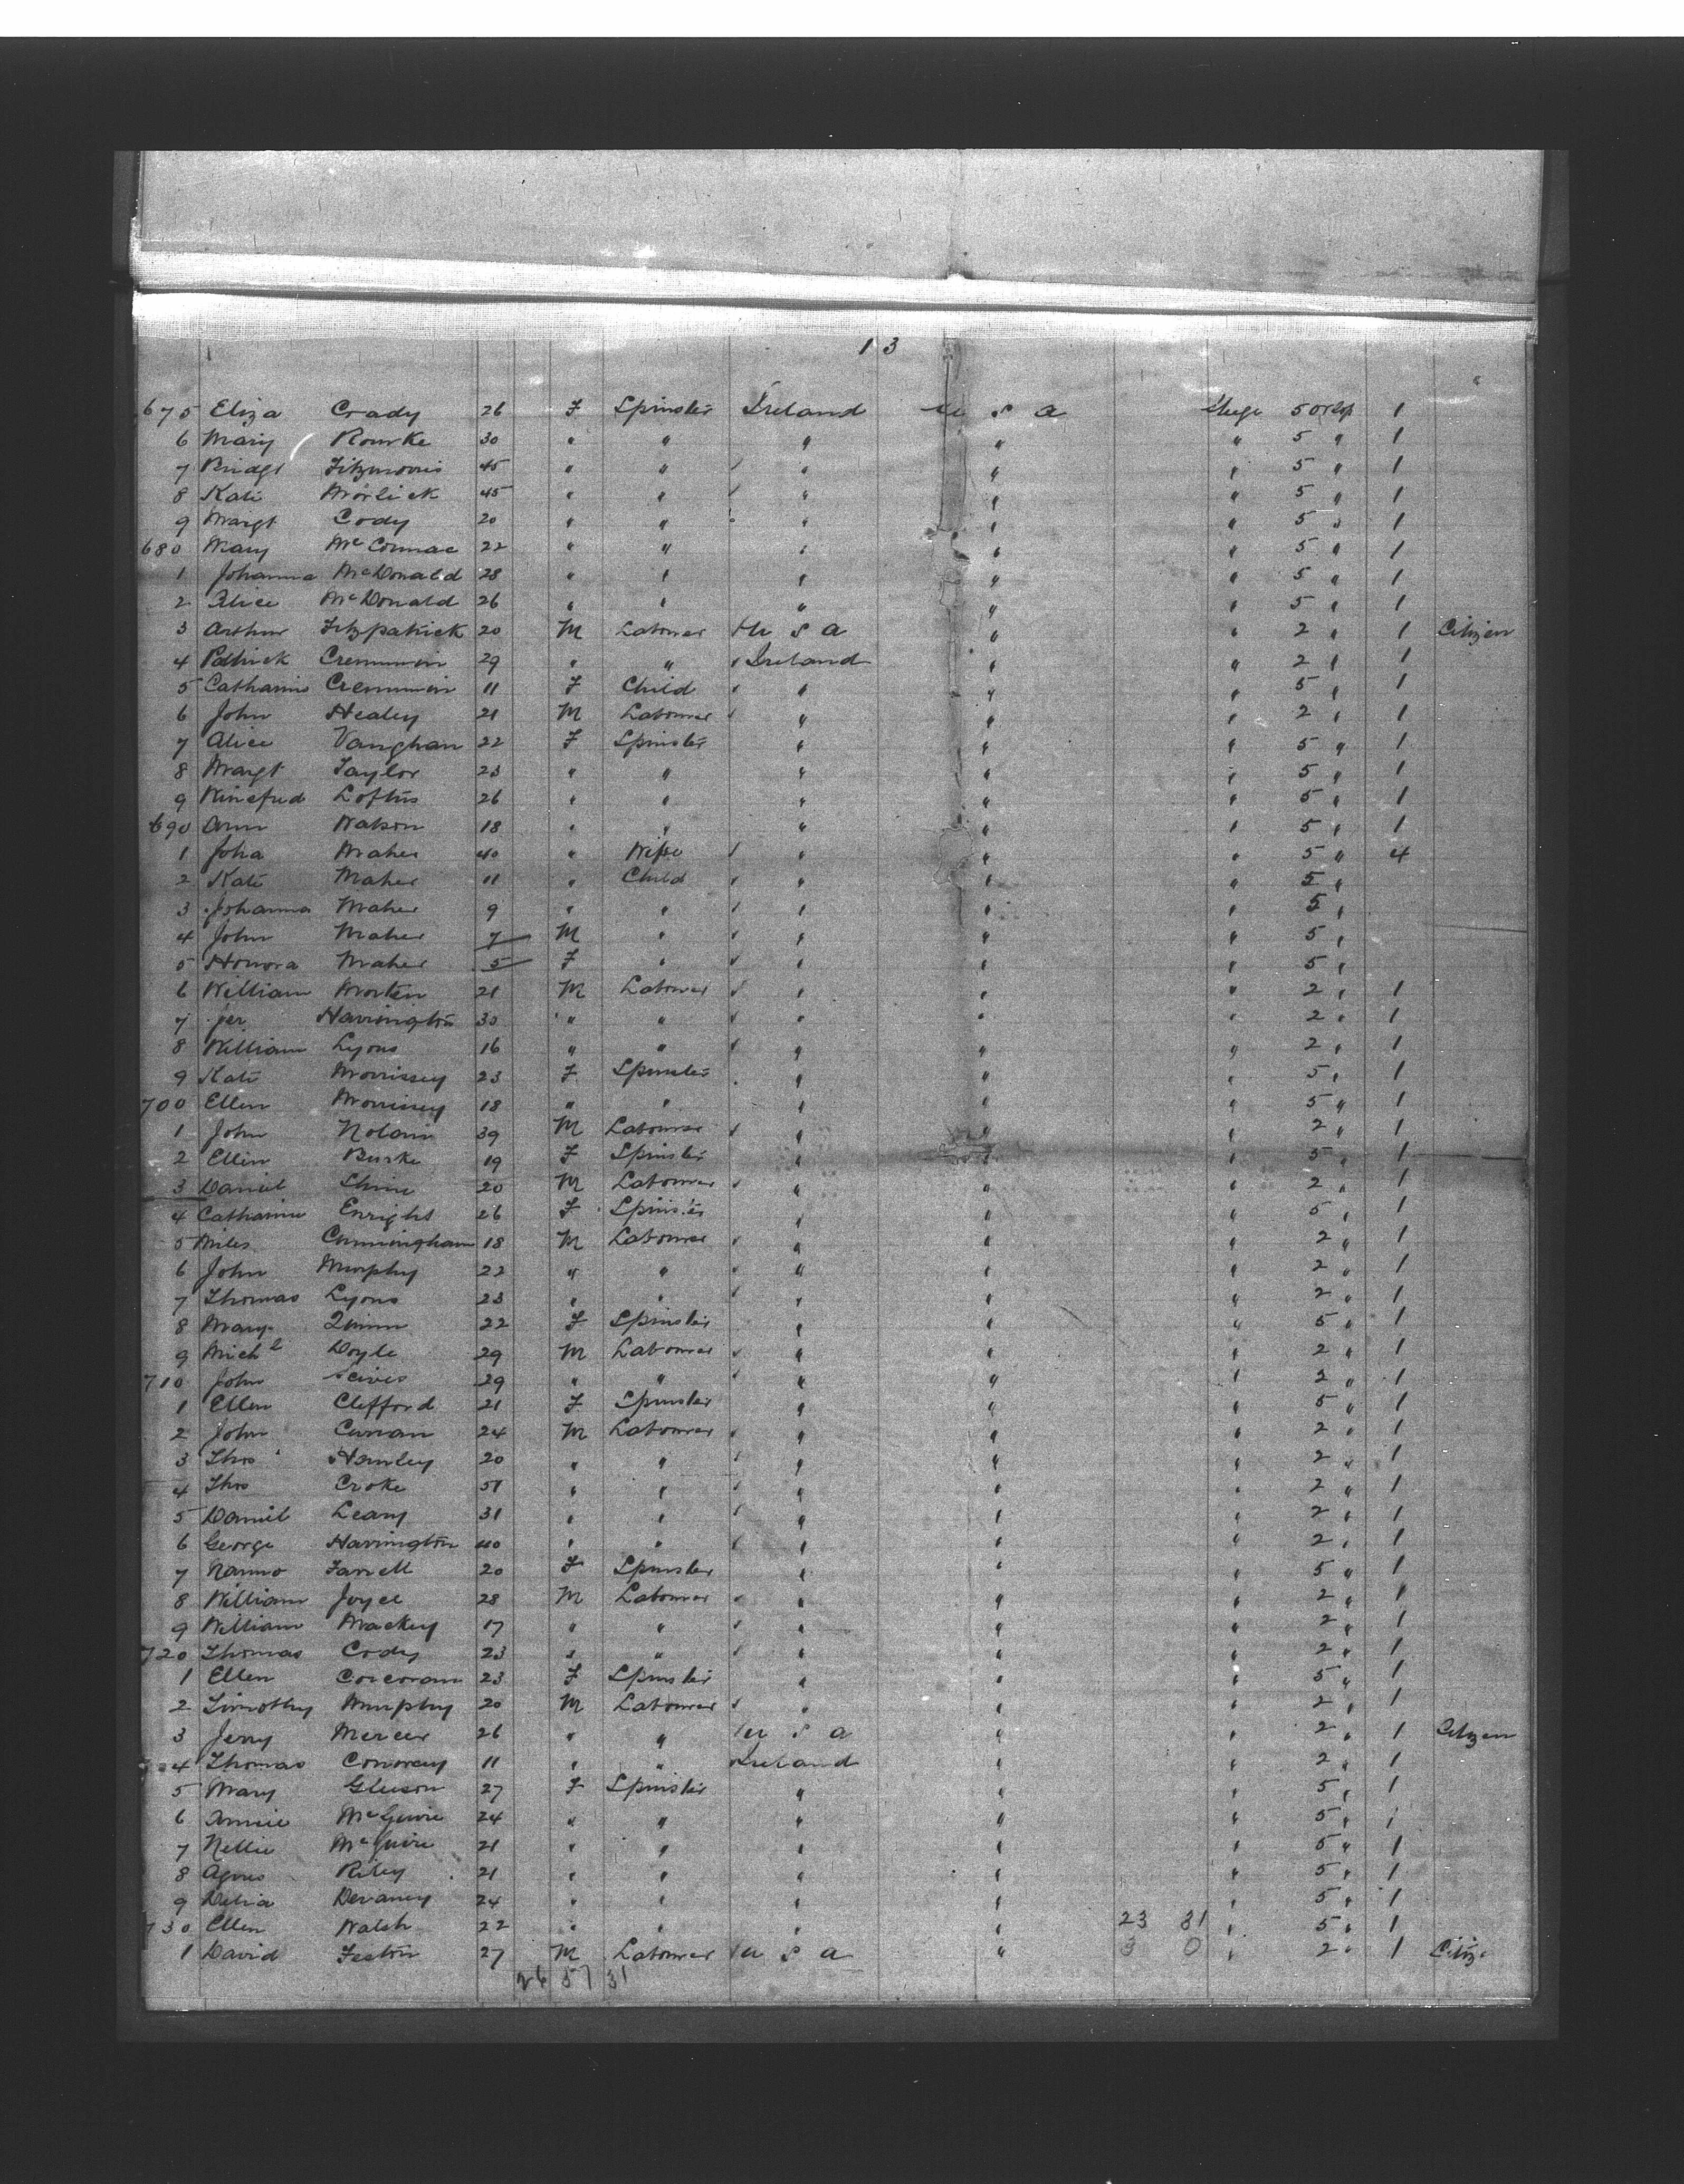 13
675 Eliza Crady 26 F Spinster Ireland U S A Stege 5 orlop 1
6 Mary Rourke 30 " " " " " 5 " 1
7 Bridgt Fitzmorris 45 " " " " " 5 " 1
8 Kate 45 " " " " " 5 " 1
9 Margt Cody 20 " " " " " 5 " 1
680 Mary McCormac 22 " " " " " 5 " 1
1 Johanna McDonald 28 " " " " " 5 " 1
2 Alice McDonald 26 " " " " " 5 " 1
3 Arthur Fitzpatrick 20 M Labourer U S A " " 2 " 1 Citizen
4 Patrick Cremmin 29 " " Ireland " " 2 " 1
5 Catharine Cremmin 11 F Child " " " 5 " 1
6 John Healey 21 M Labourer " " " 2 " 1
7 Alice Vaughan 22 F Spinster " " " 5 " 1
8 Margt Taylor 23 " " " " " 5 " 1
9 Winefred Loftus 26 " " " " " 5 " 1
690 Ann Watson 18 " " " " " 5 " 1
1 Joha Maher 40 " Wife " " " 5 " 4
2 Kate Maher 11 " Child " " " 5 "
3 Johanna Maher 9 " " " " " 5 "
4 John Maher 7 M " " " " 5 "
5 Honora Maher 5 F " " " " 5 "
6 William Morten 21 M Labourer " " " 2 " 1
7 Jer Harrington 30 " " " " " 2 " 1
8 William Lyons 16 " " " " " 2 " 1
9 Kate Morrissey 23 F Spinster " " " 5 " 1
700 Ellen Morrissey 18 " " " " " 5 " 1
1 John Nolan 39 M Labourer " " " 2 " 1
2 Ellen Burke 19 F Spinster " " " 5 " 1
3 Daniel Shine 20 M Labourer " " " 2 " 1
4 Catharine Enright 26 F Spinster " " " 5 " 1
5 Miles Cunningham 18 M Labourer " " " 2 " 1
6 John Murphy 22 " " " " " 2 " 1
7 Thomas Lyons 23 " " " " " 2 " 1
8 Mary Quinn 22 F Spinster " " " 5 " 1
9 Michl Doyle 29 M Labourer " " " 2 " 1
710 John 29 " " " " " 2 " 1
1 Ellen Clifford 21 F Spinster " " " 5 " 1
2 John Curran 24 M Labourer " " " 2 " 1
3 Thos Hanley 20 " " " " " 2 " 1
4 Thos Croke 51 " " " " " 2 " 1
5 Daniel Leary 31 " " " " " 2 " 1
6 George Harrington 40 " " " " " 2 " 1
7 Nanno Farrell 20 F Spinster " " " 5 " 1
8 William Joyce 28 M Labourer " " " 2 " 1
9 William Mackey 17 " " " " " 2 " 1
720 Thomas Cody 23 " " " " " 2 " 1
1 Ellen Corcoran 23 F Spinster " " " 5 " 1
2 Timothy Murphy 20 M Labourer " " " 2 " 1
3 Jerry Mercer 26 " " U S A " " 2 " 1 Citizen
4 Thomas Conorey 11 " " Ireland " " 2 " 1
5 Mary Gleeson 27 F Spinster " " " 5 " 1
6 Annie McGuire 24 " " " " " 5 " 1
7 Nellie McGuire 21 " " " " " 5 " 1
8 Agnes Riley 21 " " " " " 5 " 1
9 Delia Devaney 24 " " " " " 5 " 1
730 Ellen Walsh 22 " " " " 23 31 " 5 " 1
1 David Feeton 27 M Labourer U S A " 3 0 " 2 " 1 Citiz
26 57 31